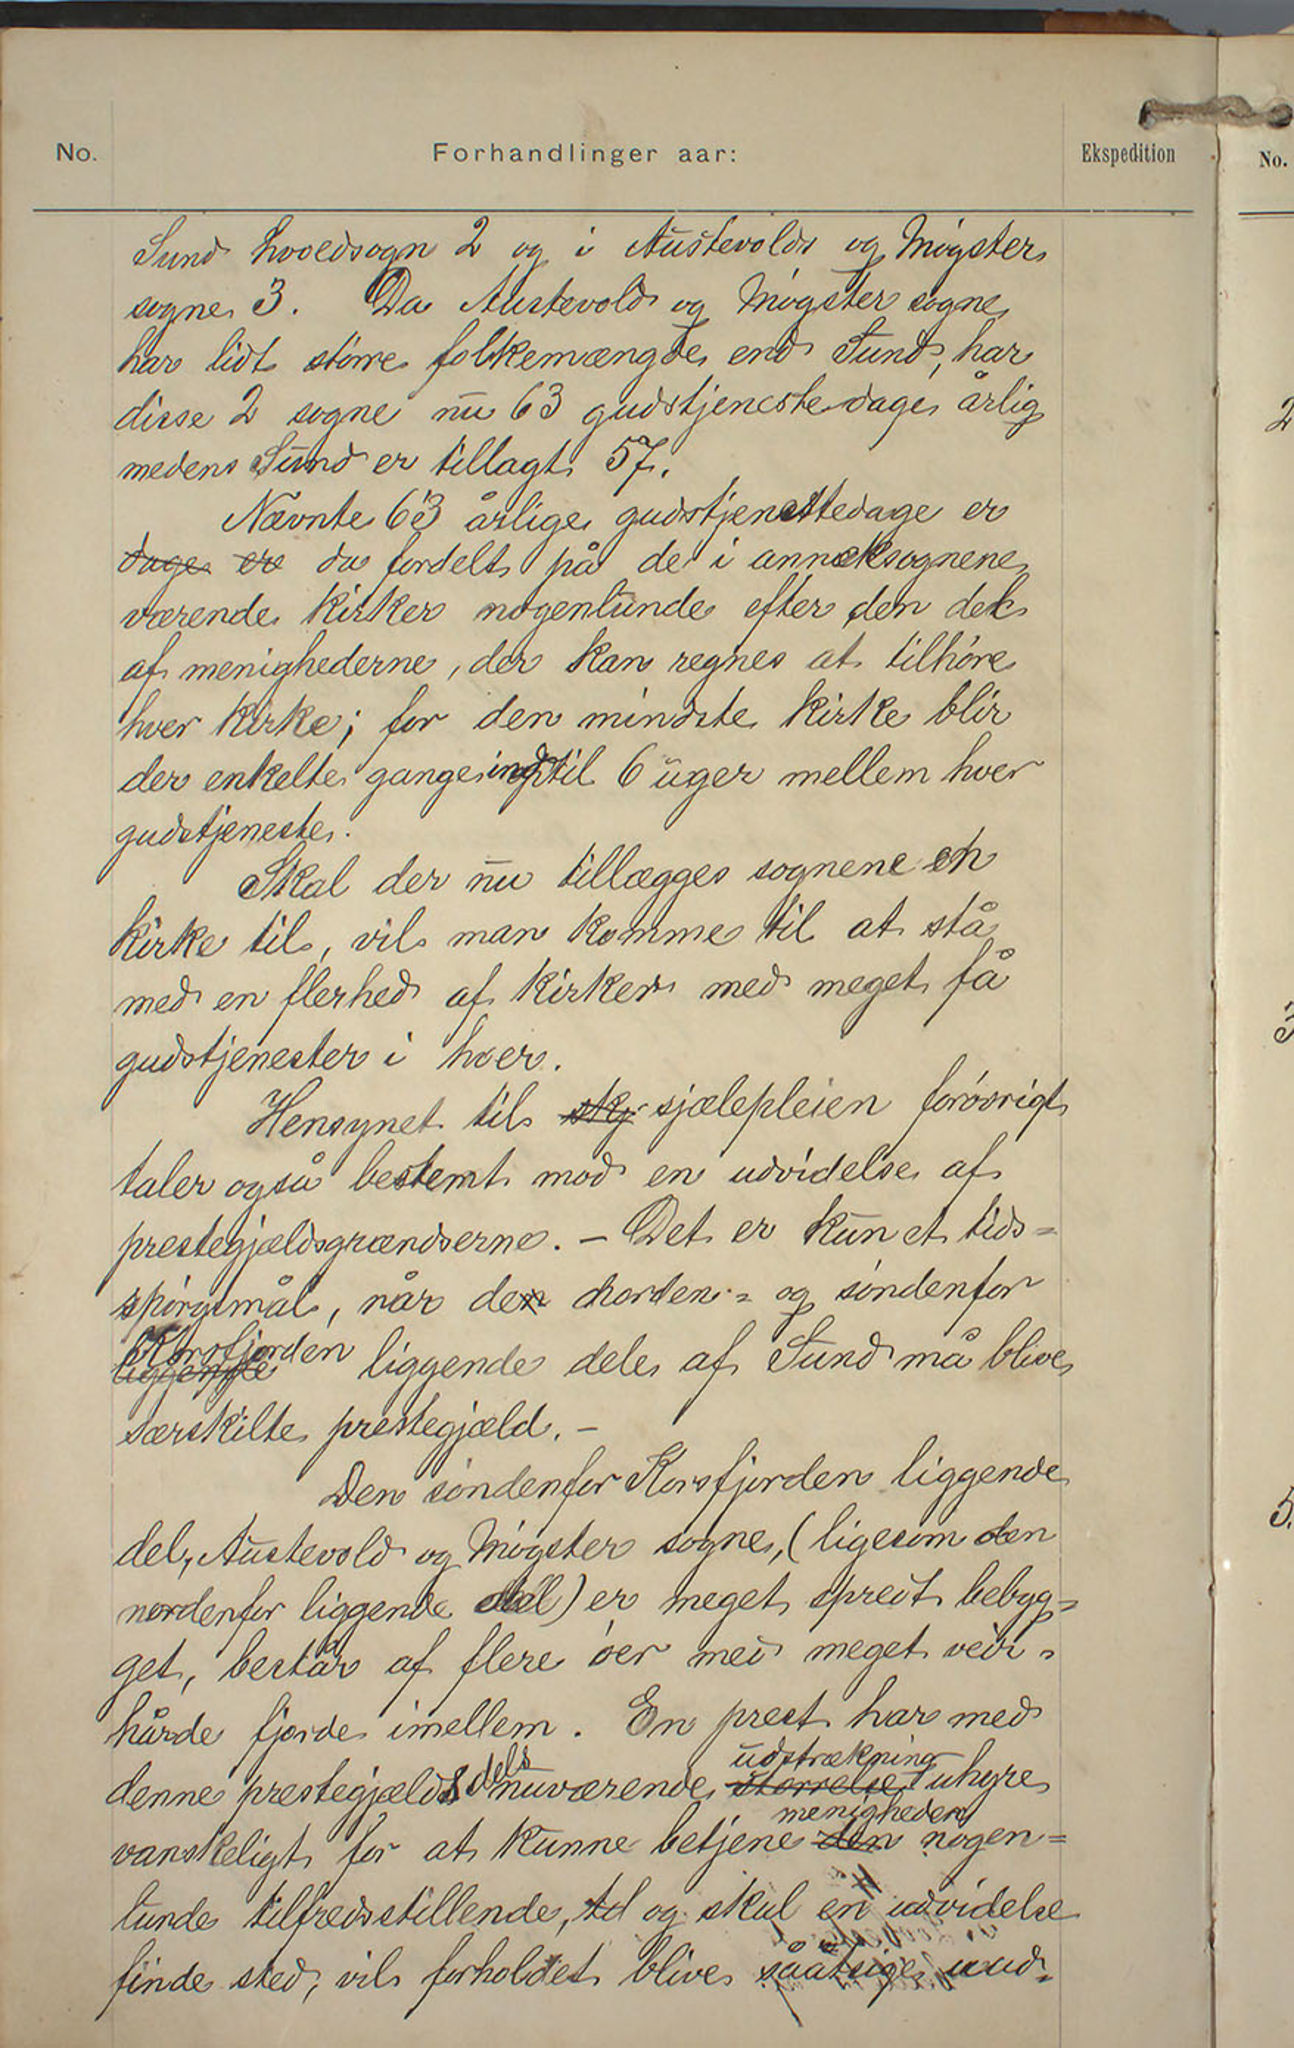 No.
Forhandlinger aar:
Ekspedition
No.
Sund hovedsogn 2 og i Austevolds og Møgster
sogne 3. Da Austevold og Møgster sogne
har lidt større folkemængde end Sund, har
disse 2 sogne nu 63 gudstjenestedage årlig
medens Sund er tillagt 57.
Nævnte 63 årlige gudstjenestedage er
dage er da fordelt på de i annekssognene
værende kirker nogenlunde efter den del
af menighederne, der kan regnes at tilhøre
hver kirke; for den mindste kirke blir
der enkelte gange indtil 6 uger mellem hver
gudstjeneste.
Skal der nu tillægges sognene en
kirke til, vil man komme til at stå
med en flerhed af kirker med meget få
gudstjenester i hver.
Hensynet til sky sjælepleien forøvrigt
taler også bestemt mod en udvidelse af
prestegjældsgrændserne. – Det er kun et tids=
spørgsmål, når den norden= og søndenfor
Korsfjorden
liggende liggende dele af Sund må blive
særskilte prestegjæld. –
Den søndenfor Korsfjorden liggende
del, Austevold og Møgster sogne, (ligesom den
nordenfor liggende del) er meget spredt bebyg=
get, består af flere øer med meget veir=
hårde fjorde imellem. En prest har med
dels udstrækning
denne prestegjælds nuværende størrelse uhyre
menigheden
vanskeligt for at kunne betjene den nogen=
lunde tilfredsstillende, og skal en udvidelse
finde sted, vil forholdet blive såatsige uud=
2
3
5.